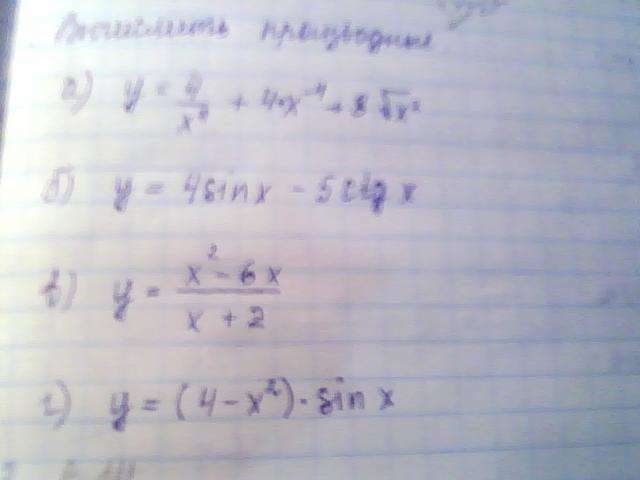 Вычислить производные
а) y = 4/x⁴ + 4·x⁻⁴ + 8
б) y = 4sinx - 5ctg x
в) y = (x² - 6x)/(x + 2)
г) y = (4 - x²) · sin x